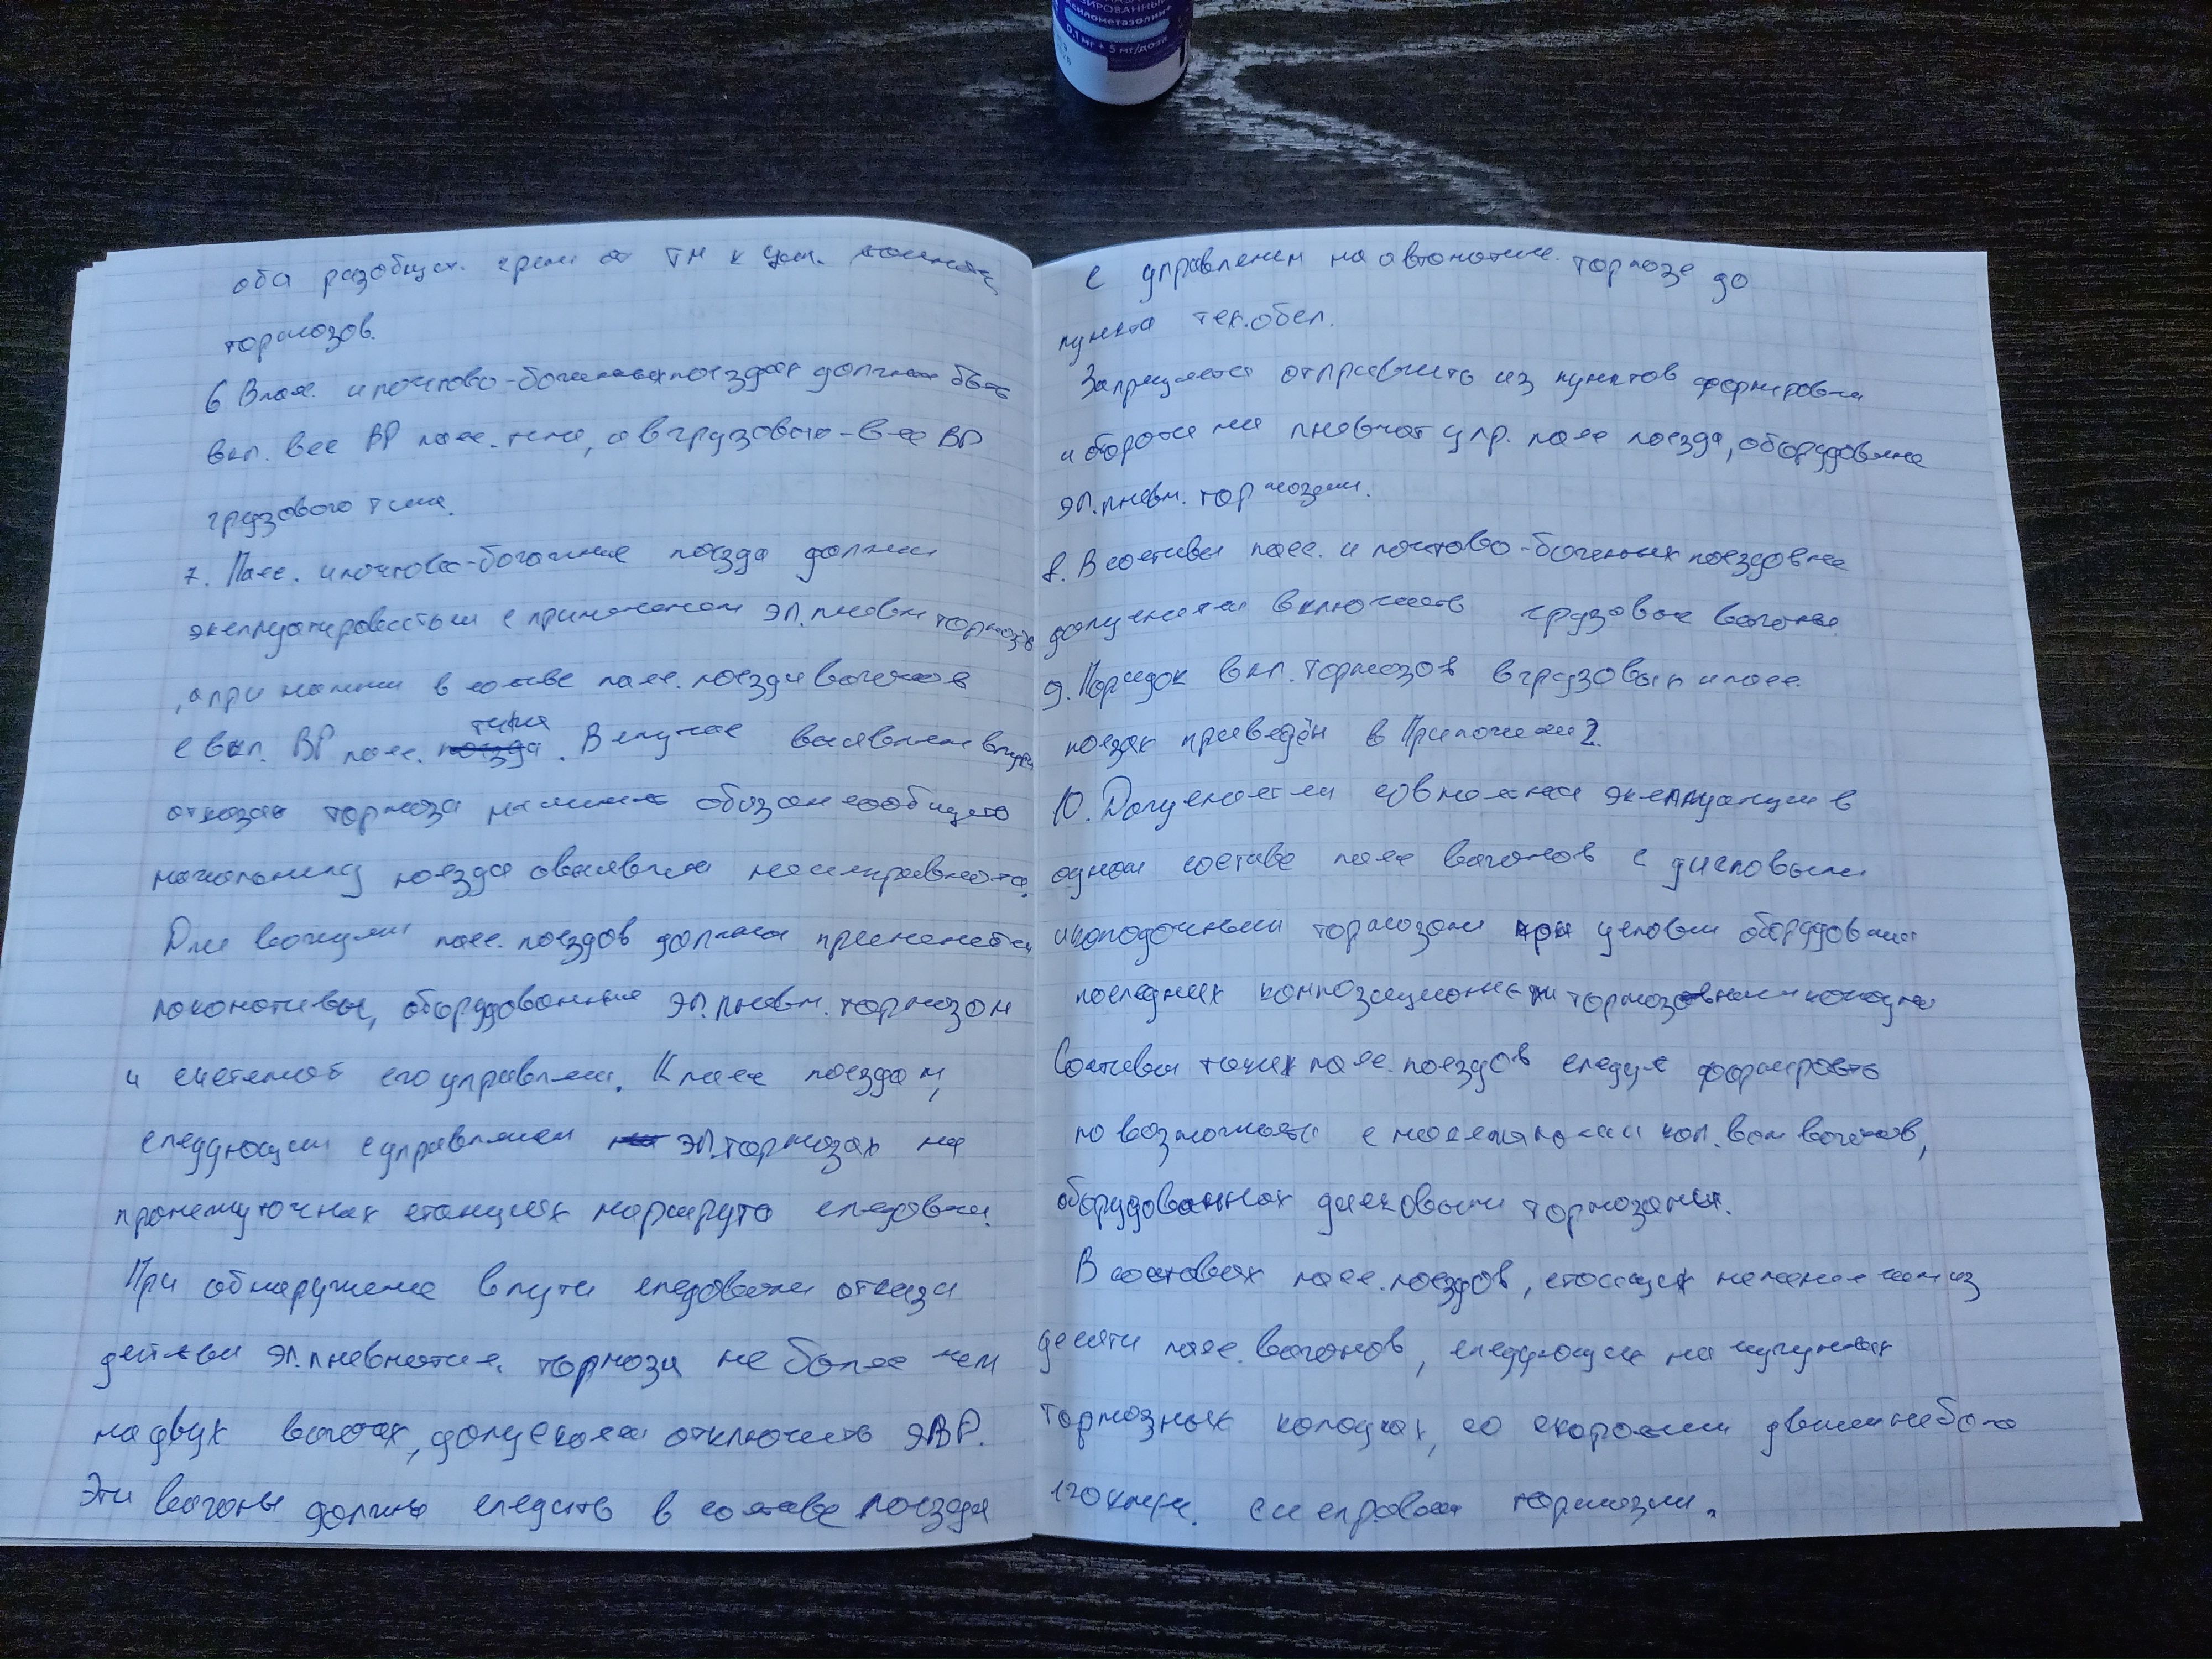 ЗИРОВАННЫЙ
ксилометазолин+
0,1 мг + 5 мг/доза
оба разобщит. крана от ТМ к
тормозов.
6 В пасс. и почтово-багажных поездах должны быть
вкл. все ВР пасс. типа, а в грузовых - все ВР
грузового типа.
7. Пасс. и почтово-багажные поезда должны
эксплуатироваться с применением эл. пневм тормозов
, а при наличии в составе пасс. поезда вагонов
с вкл. ВР пасс. типа. В случае выявления в пути
отказа тормоза машинист обязан сообщить
начальнику поезда о выявлен неисправности.
Для пасс. поездов должны применяться
локомотивы, оборудованные эл. пневм. тормозом
и системой его управлени. К пасс поездам,
следующим с управлением эл. тормозах на
промежуточных станциях маршрута следован.
При обнаружение в пути следования отказа
действи эл. пневматич. тормоза не более чем
на двух вагонах, допускается отключить ЭВР.
Эти вагоны должны следовать в составе поезда
с управлением на автоматич. тормозе до
пункта тех. обсл.
Запрещается отправлять из пунктов формировани
и оборота на пневмат упр. пасс поезда, оборудованные
эл. пневм. тормозами.
8. В составы пасс. и почтово-багажных поездов не
допускается включать грузовые вагоны.
9. Порядок вкл. тормозов в грузовых и пасс.
поездах приведён в Приложении 2.
10. Допускается совместная эксплуатация в
одном составе пасс вагонов с дисковыми
и колодочными тормозами при условии оборудования
последних композиционными тормозными колодками
Составы таких пасс. поездов следуе формировать
по возможности с максимальным кол. вом вагонов,
оборудованных дисковыми тормозами.
В составах пасс. поездов, стоящих не менее чем из
десяти пасс. вагонов, следующих на чугунных
тормозных колодках, со скоростью движени не более
120 км/ч. с исправн тормозами.